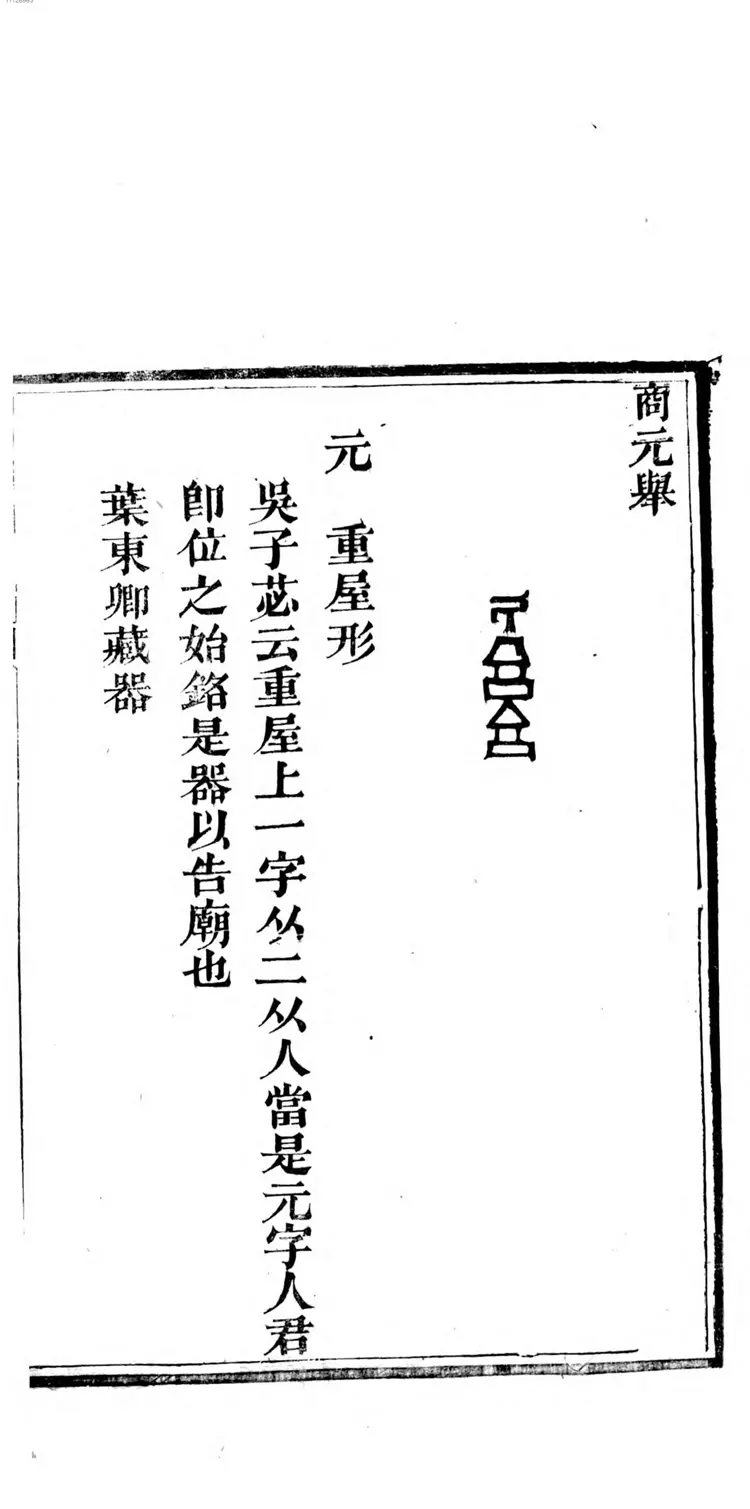 商元舉
元　重屋形
吳子苾云重屋上一字从二从人當是元字人君
卽位之始銘是器以告廟也
葉東卿藏器